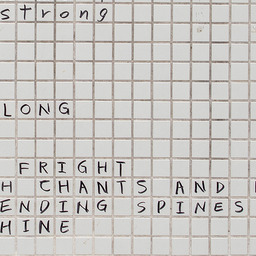 strong
LONG
FRIGHT
H CHANTS AND
ENDING SPINES
HINE